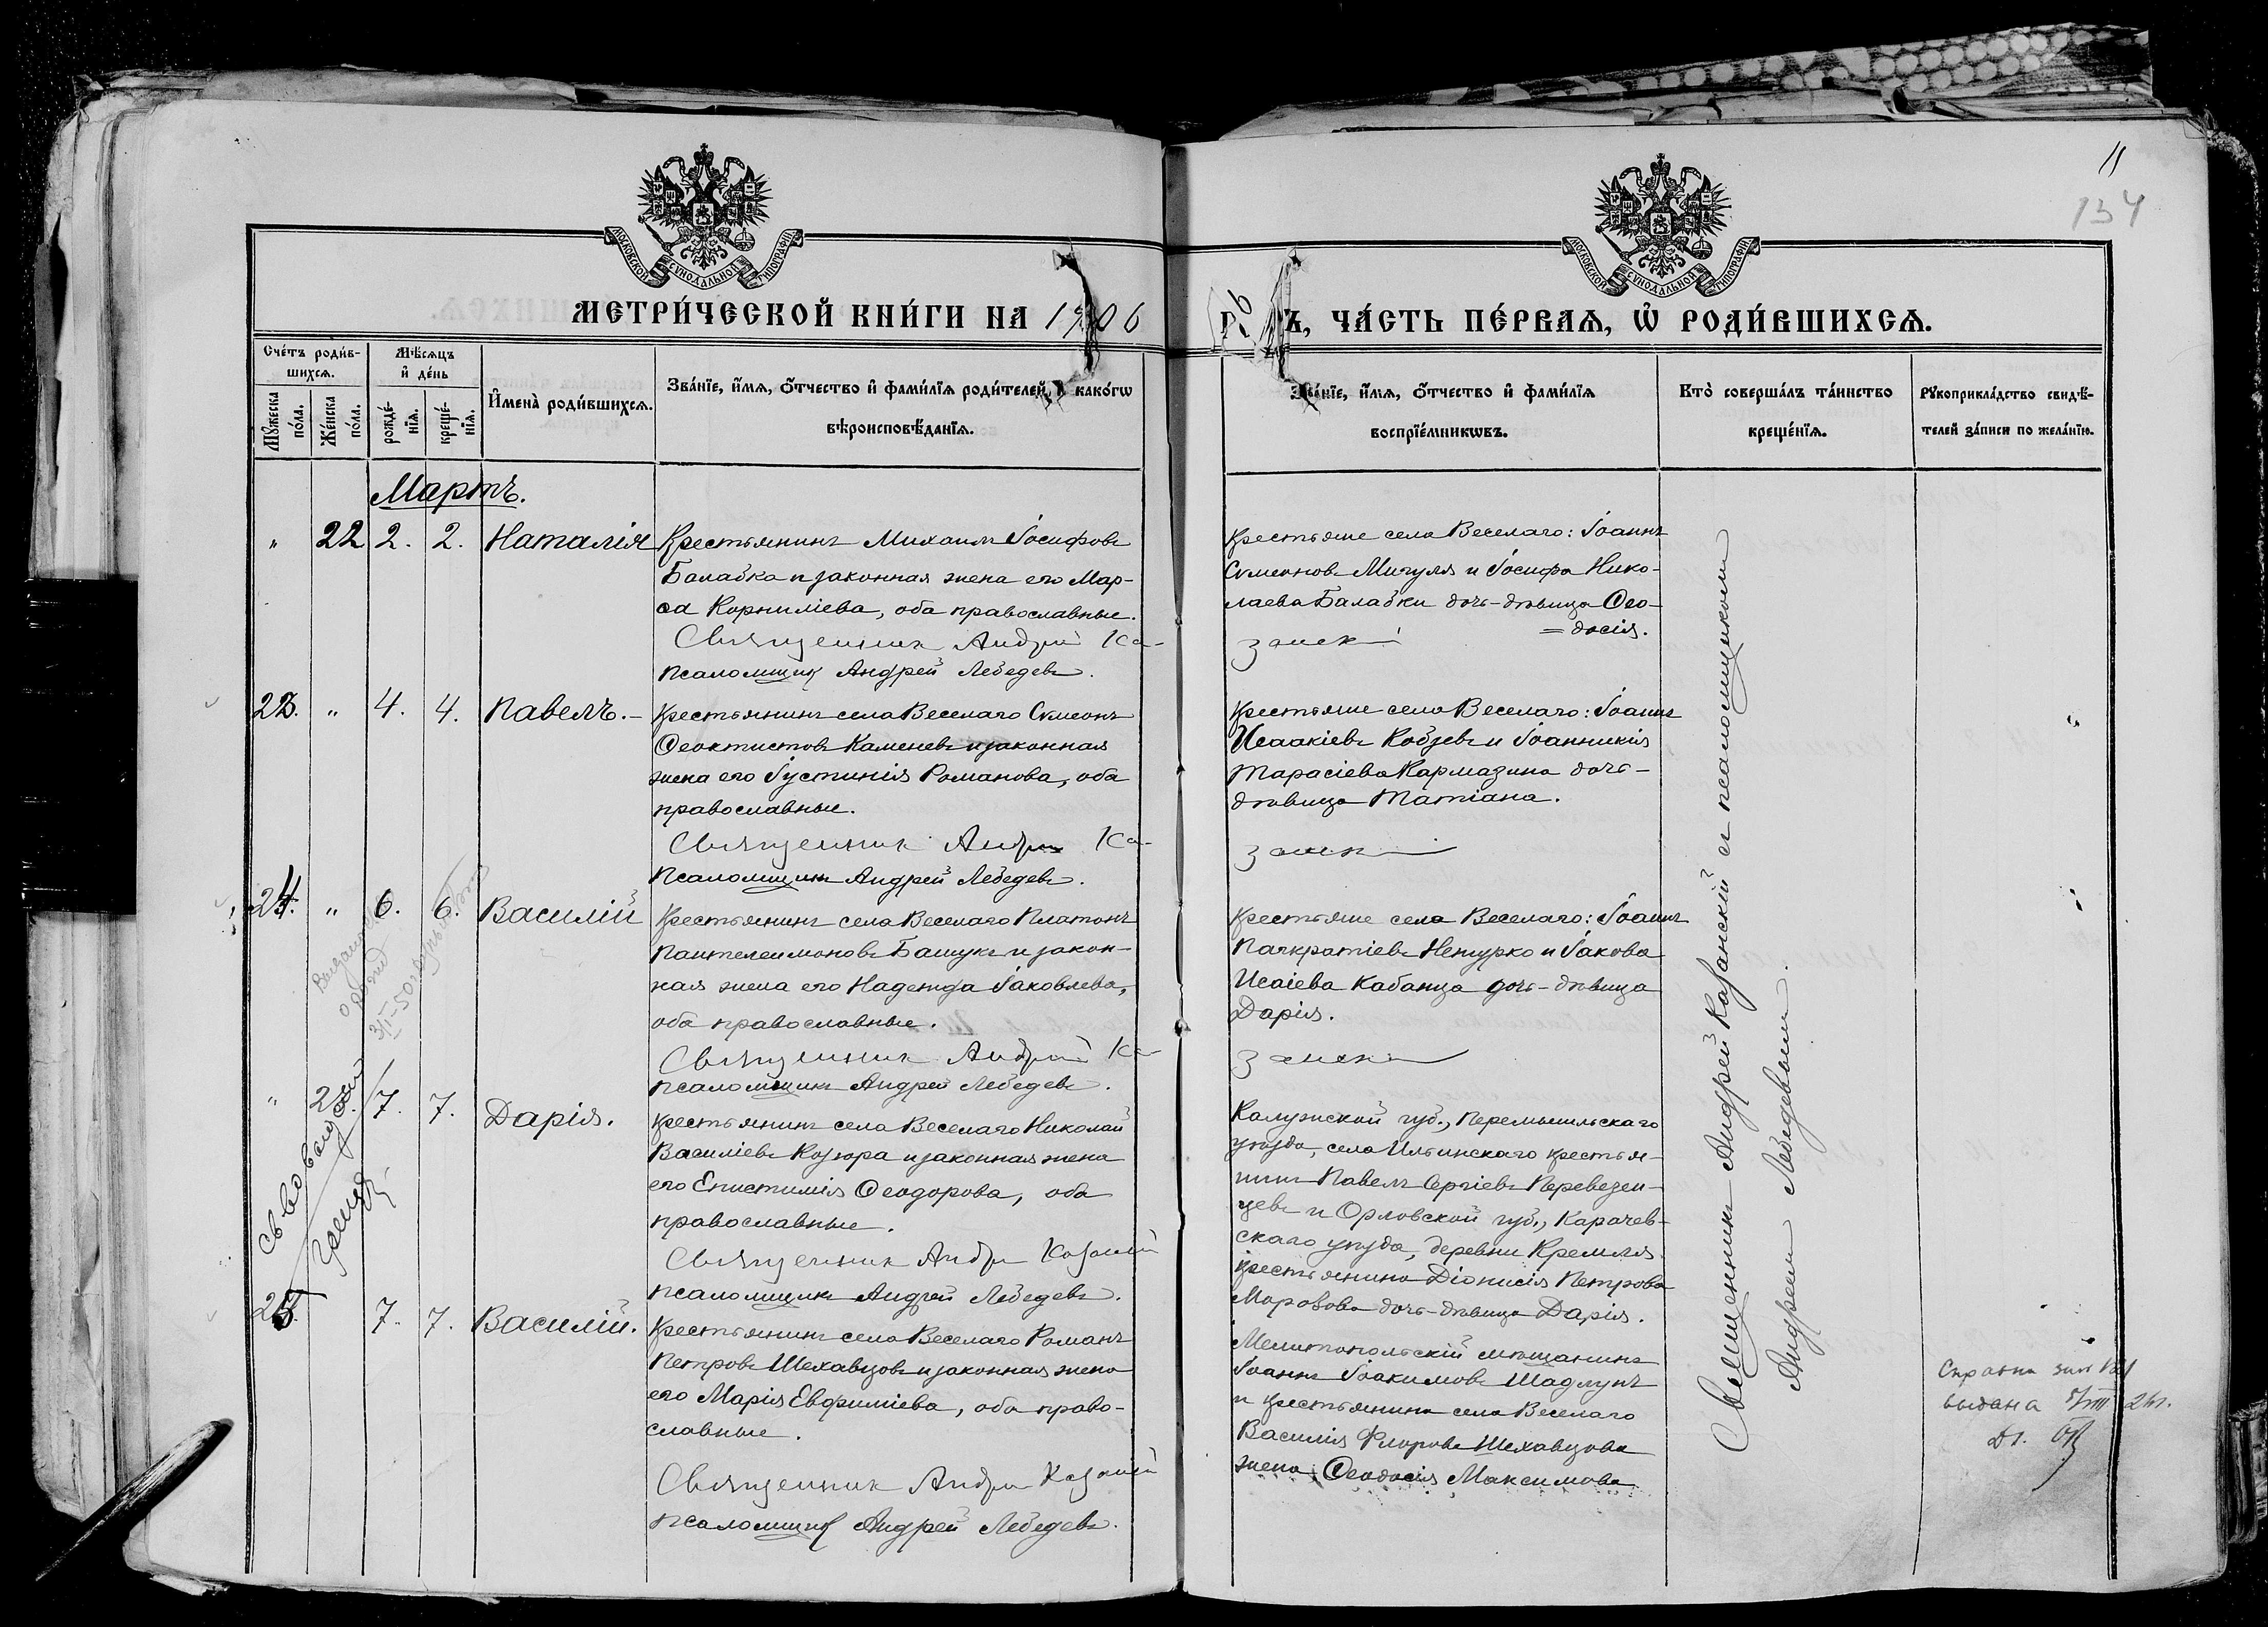 11
134
МОСКОВСКОЙ СУНОДАЛЬНОЙ ТИПОГРАФІИ
МОСКОВСКОЙ СУНОДАЛЬНОЙ ТИПОГРАФІИ
МЕТРИ́ЧЕСКОЙ КНИ́ГИ НА 1906
Г. Ъ, ЧА́СТЬ ПЕ́РВАЯ, Ѽ РОДИ́ВШИХСЯ.
Сче́тъ роди́в-
шихся.
Мѣ́сяцъ
и҆ де́нь
Му́жеска
по́ла.
Же́нска
по́ла.
рожде́-
нія.
креще́-
нія.
И҆мена̀ роди́вшихся.
Зва́нїе, и҆́мя, ѻ҆́тчество и҆ фами́лїя роди́телей, и҆ како́гѡ
вѣроисповѣ́данїя.
Зва́нїе, и҆́мя, ѻ҆́тчество и҆ фами́лїя
воспрїе́мникѡвъ.
Кто̀ соверша́лъ та́инство
креще́нїя.
Рукоприкла́дство свидѣ́-
телей за́писи по жела́нїю.
Мартъ.
" 22 2. 2. Наталія
Крестьянинъ Михаилъ Іосифовъ
Балабка и законная жена его Мар-
ѳа Корниліева, оба православные.
Священник Андрей Ка-
Псаломщик Андрей Лебедевъ.
Крестьяне села Веселаго: Іоаннъ
Сѵмеоновъ Мигуля и Іосифа Нико-
лаева Балабки дочь-дѣвица Ѳео-
=досія.
занск
23. " 4. 4. Павелъ.-
Крестьянинъ села Веселаго Сѵмеонъ
Ѳеоктистовъ Каменевъ и законная
жена его Іустинія Романова, оба
православные.
Священник Андрей Ка-
Псаломщикъ Андрей Лебедевъ.
Крестьяне села Веселаго: Іоаннъ
Исаакіевъ Кобзевъ и Іоанникія
Тарасіева Кармазина дочь-
дѣвица Татіана.
занск
24. " 6. 6. Василій
Крестьянинъ села Веселаго Платонъ
Пантелеимоновъ Башукъ и закон-
ная жена его Надежда Іаковлева,
оба православные.
Священник Андрей Ка-
Псаломщикъ Андрей Лебедевъ.
Крестьяне села Веселаго: Іоаннъ
Панкратіевъ Нетурко и Іакова
Исаіева Кабанца дочь-дѣвица
Дарія.
занск
" 23. 7. 7. Дарія.
Крестьянинъ села Веселаго Николай
Василіевъ Козюра и законная жена
его Епистимія Ѳеодорова, оба
православные.
Священник Андрей Казанский
Псаломщикъ Андрей Лебедевъ.
Калужской губ., Перемышльскаго
уѣзда, села Ильинскаго крестья-
нинъ Павелъ Сергіевъ Перевезен-
цевъ и Орловской губ., Карачев-
скаго уѣзда, деревни Кремля
крестьянина Діонисія Петрова
Моровова дочь-дѣвица Дарія.
25. 7. 7. Василій.
Крестьянинъ села Веселаго Романъ
Петровъ Шехавцовъ и законная жена
его Марія Евфиміева, оба право-
славные.
Священник Андрей Казанский
Псаломщик Андрей Лебедевъ.
Мелитопольскій мѣщанинъ
Іоаннъ Іоакимовъ Шадлунъ
и крестьянина села Веселаго
Василія Флорова Шехавцова
жена Ѳеодосія Максимова
Священникъ Андрей Казанскій съ псаломщикомъ
Андреемъ Лебедевымъ.
выдана